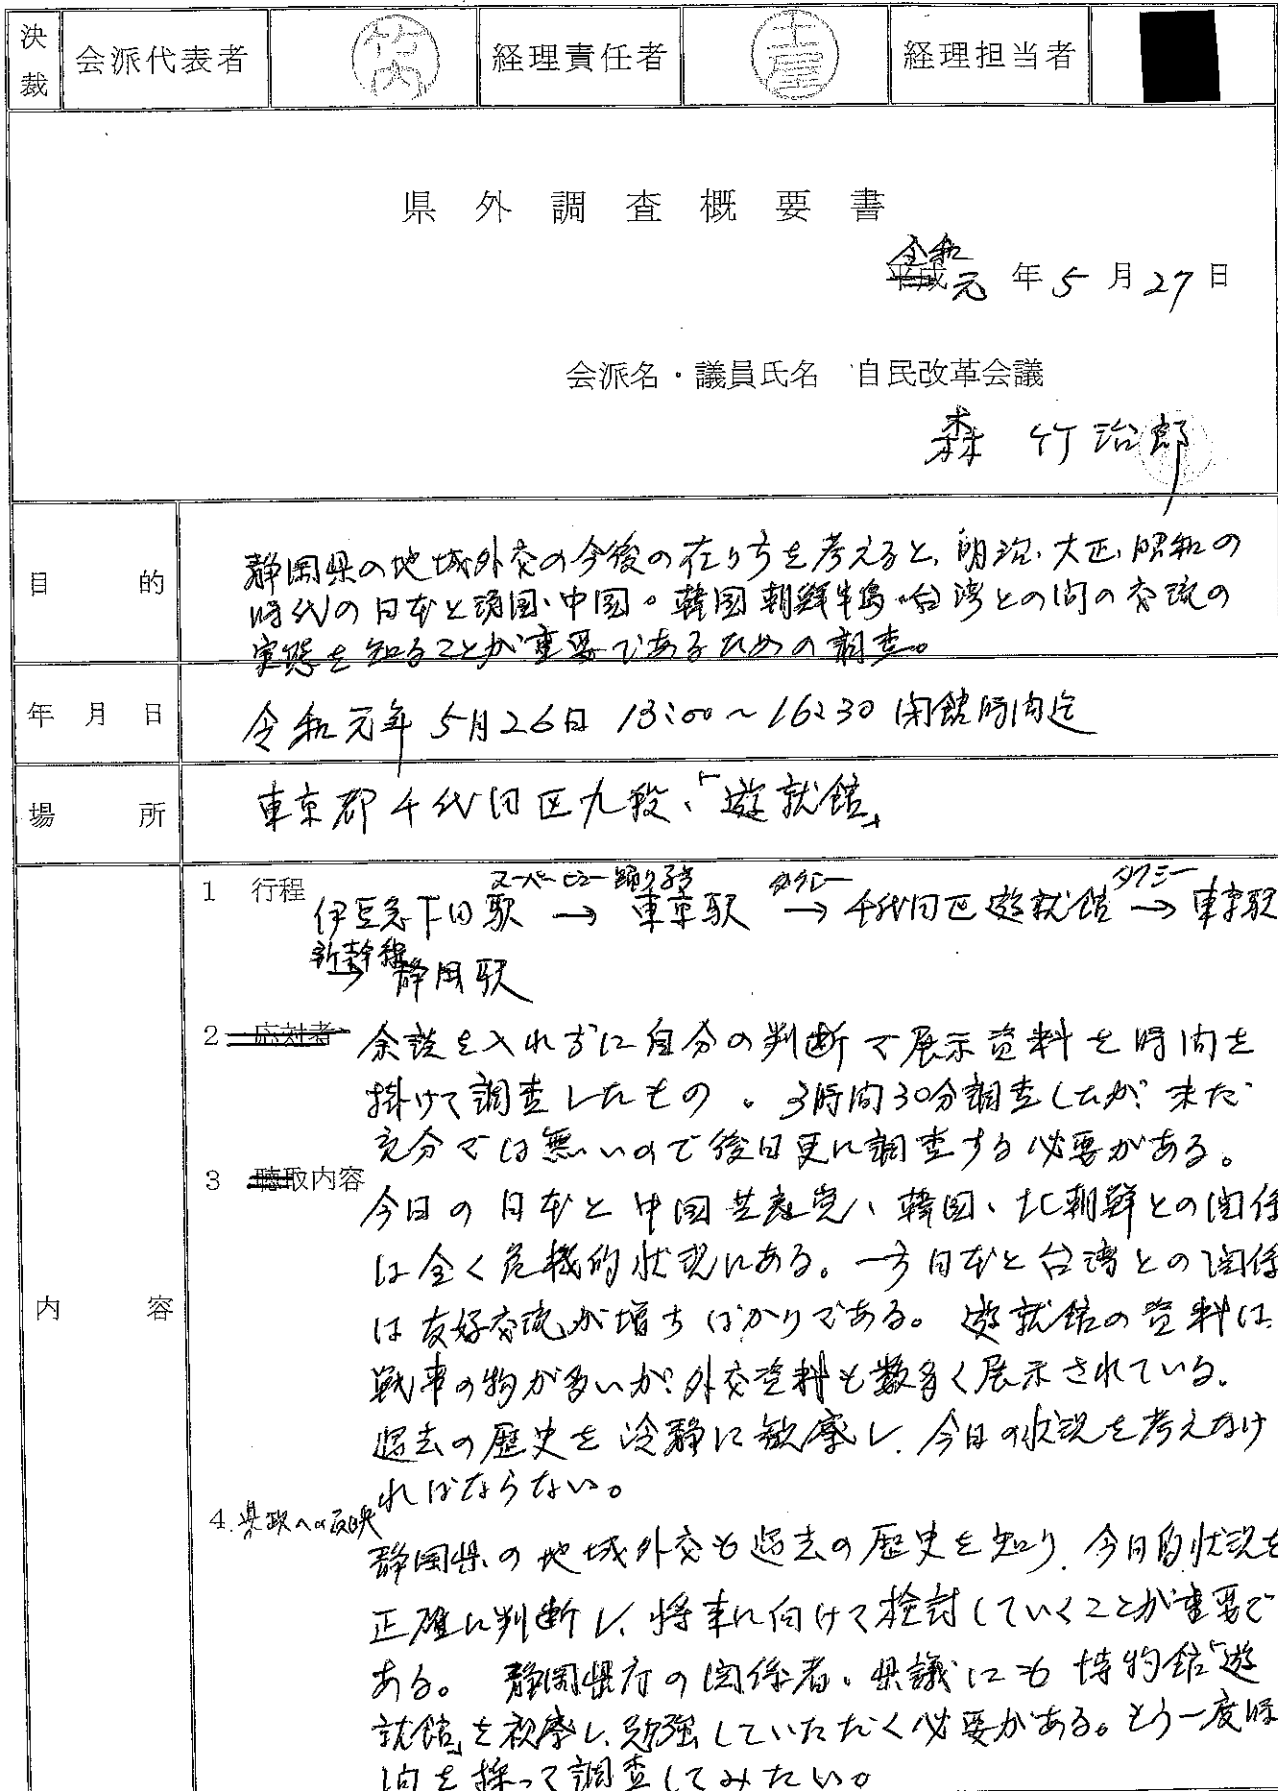 決裁 会派代表者 竹内 経理責任者 土屋 経理担当者
県外調査概要書
令和
平成元年5月27日
会派名・議員氏名 自民改革会議
森 竹治郎
目的
静岡県の地域外交の今後の在り方を考えると、明治、大正、昭和の
時代の日本と清国、中国。韓国朝鮮半島・台湾との間の交流の
実態を知ることが重要であるための調査。
年月日
令和元年5月26日 13:00~16:30 閉館時間迄
場所
東京都千代田区九段、「遊就館」
内容
1 行程
スーパービュー踊り子号 タクシー タクシー
伊豆急下田駅 → 東京駅 → 千代田区遊就館 → 東京駅
新幹線
→ 静岡駅
2 応対者 余談を入れずに自分の判断で展示資料を時間を
掛けて調査したもの。3時間30分調査したが、未だ
充分では無いので後日更に調査する必要がある。
3 聴取内容
今日の日本と中国共産党、韓国、北朝鮮との関係
は全く危機的状況にある。一方日本と台湾との関係
は友好交流が増すばかりである。遊就館の資料は
戦事の物が多いが、外交資料も数多く展示されている。
過去の歴史を冷静に観察し、今日の状況を考えなけ
ればならない。
4.県政への反映
静岡県の地域外交も過去の歴史を知り、今日的状況を
正確に判断し、将来に向けて検討していくことが重要で
ある。静岡県庁の関係者、県議にも博物館「遊
就館」を視察し、勉強していただく必要がある。もう一度時
間を採って調査してみたい。